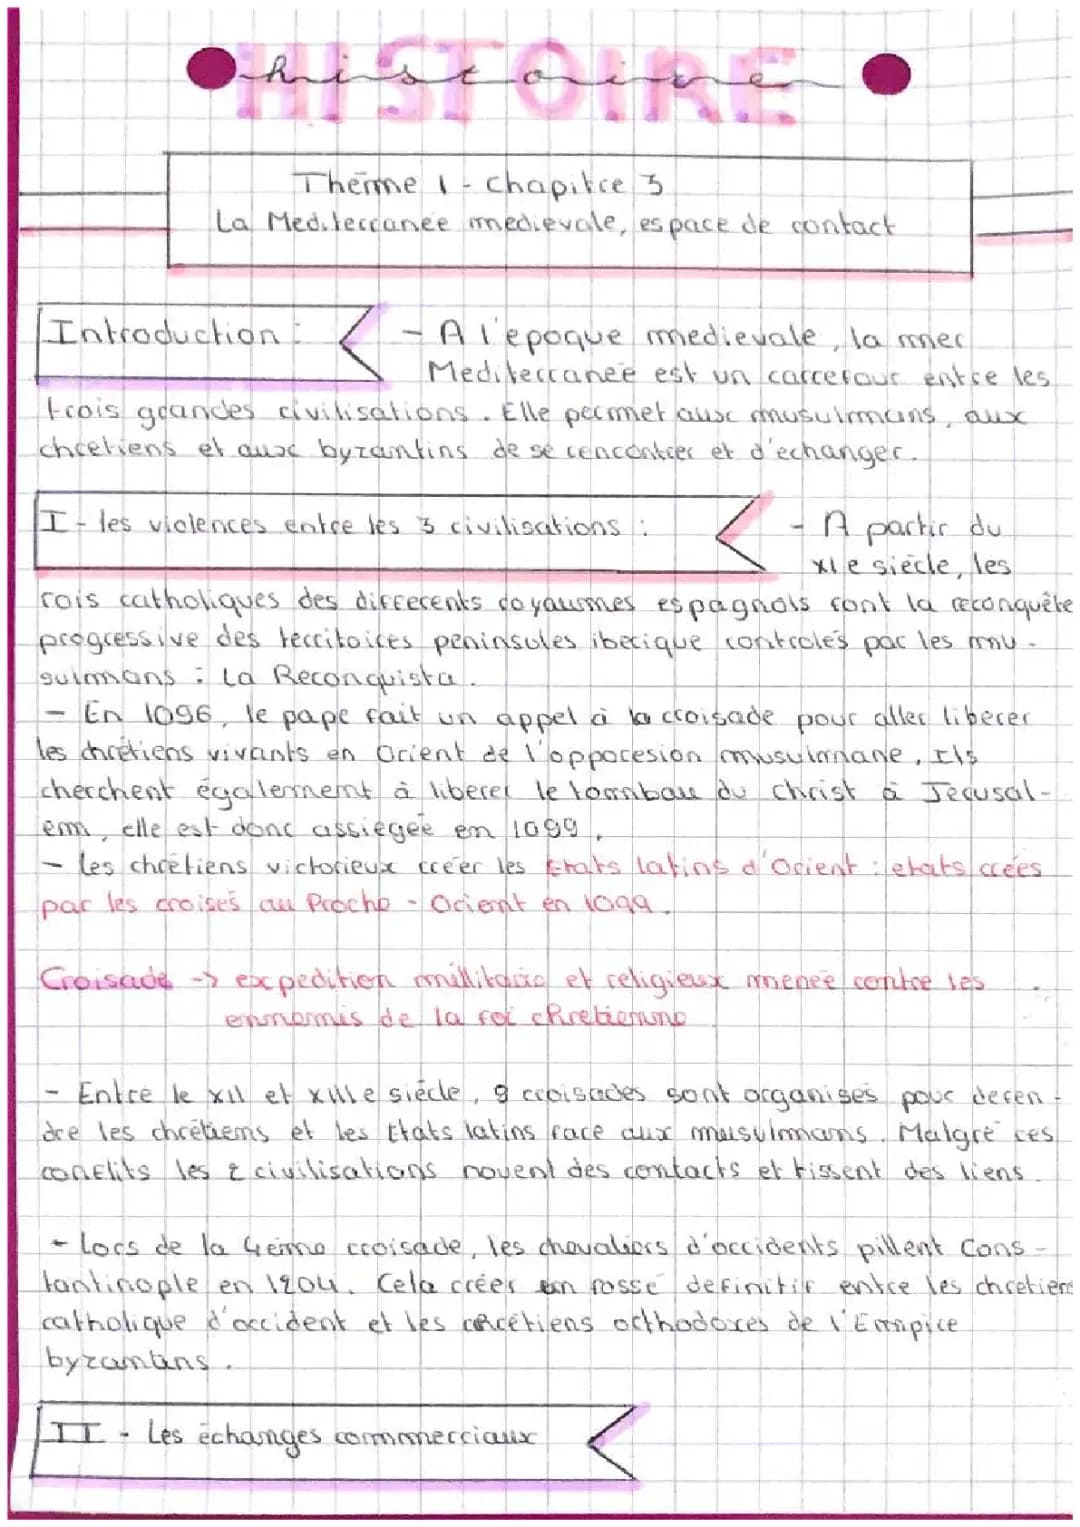 HISTOIRE
histoire
Thème 1 - chapitre 3
La Mediterranée medievale, espace de contact
Introduction :
- A l'epoque medievale, la mer
Mediterraneé est un carrefour entre les
trois grandes civilisations. Elle permet aux musulmans, aux
chretiens et aux byzantins de se rencontrer et d'echanger.
I - les violences entre les 3 civilisations :
- A partir du
XIe siècle, les
rois catholiques des differents royaumes espagnols font la reconquête
progressive des territoires peninsules iberique controlés par les mu-
sulmans : la Reconquista.
- En 1096, le pape fait un appel à la croisade pour aller liberer
les chrétiens vivants en Orient de l'opporesion musulmane. Ils
cherchent également à liberer le tombau du Christ à Jerusal-
em, elle est donc assiegée en 1099.
- les chrétiens victorieux créer les Etats latins d'Orient : etats crées
par les croisés au Proche-Orient en 1099.
Croisade -> expedition millitaire et religieux meneé contre les
ennemis de la foi chretienne
- Entre le XII et XIIIe siècle, 8 croisades sont organisés pour defen-
dre les chrétiens et les Etats latins face aux musulmans. Malgré ces
conflits les 2 civilisations nouent des contacts et tissent des liens.
- Lors de la 4eime croisade, les chevaliers d'occidents pillent Cons-
tantinople en 1204. Cela créer un fossé definitif entre les chretiens
catholique d'occident et les chrétiens orthodoxes de l'Empire
byzantins.
II - Les échanges commerciaux